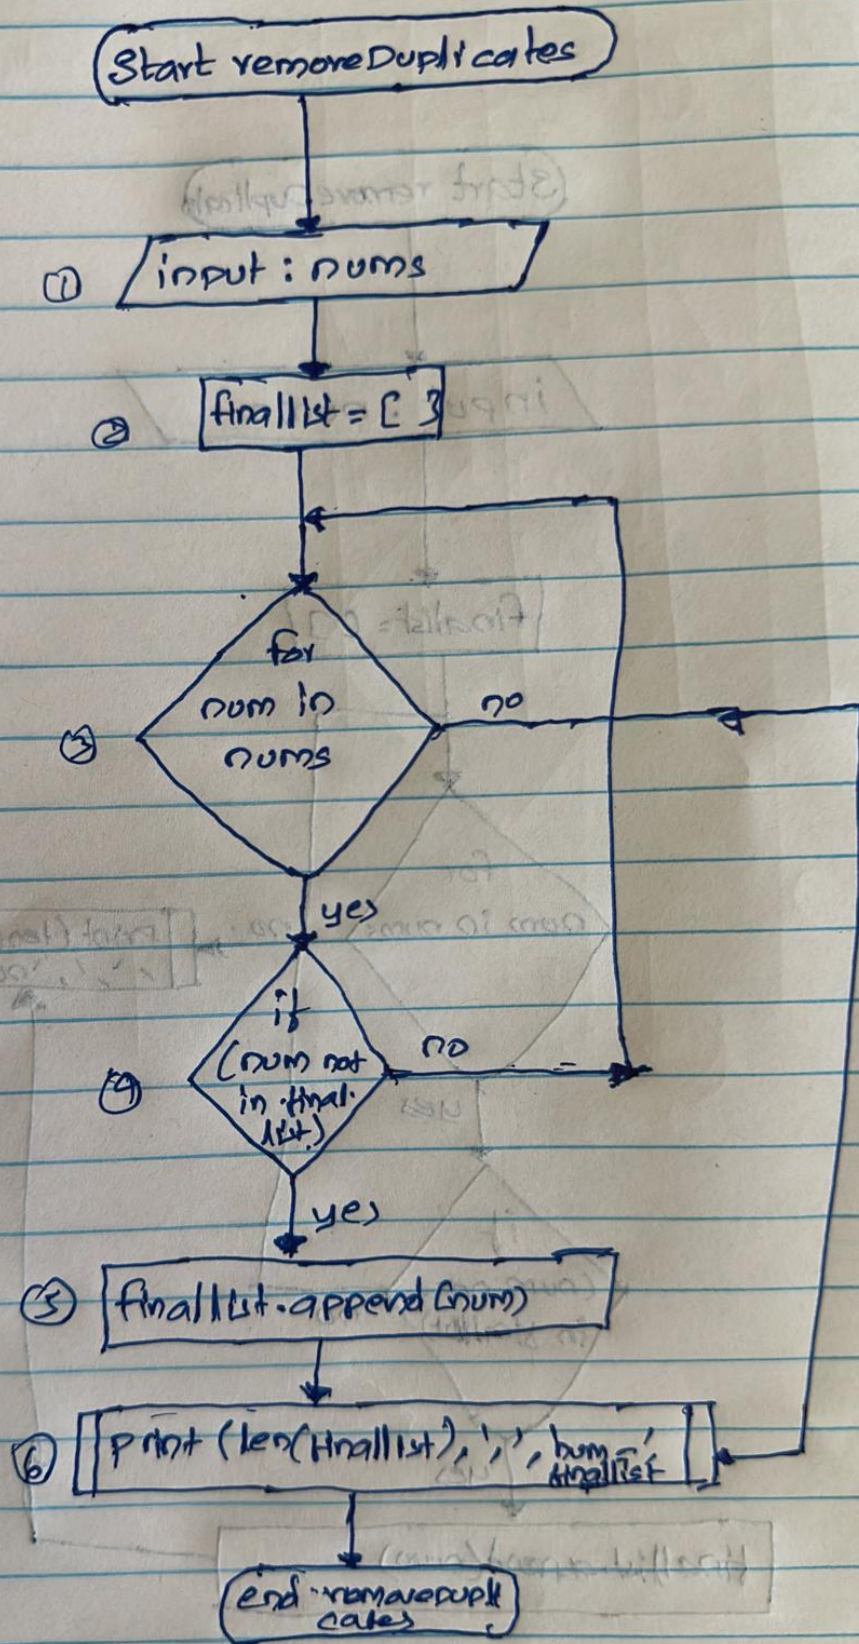 Start removeDuplicates
① input : nums
② finallist = [ ]
③ for
num in
nums
no
yes
④ if
(num not
in final
list)
no
yes
⑤ finallist.append(num)
⑥ print (len(finallist), ',',
finallist
end removedupli
cates